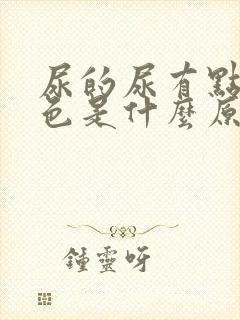 尿的尿有點
色是什麼原
鍾靈呀